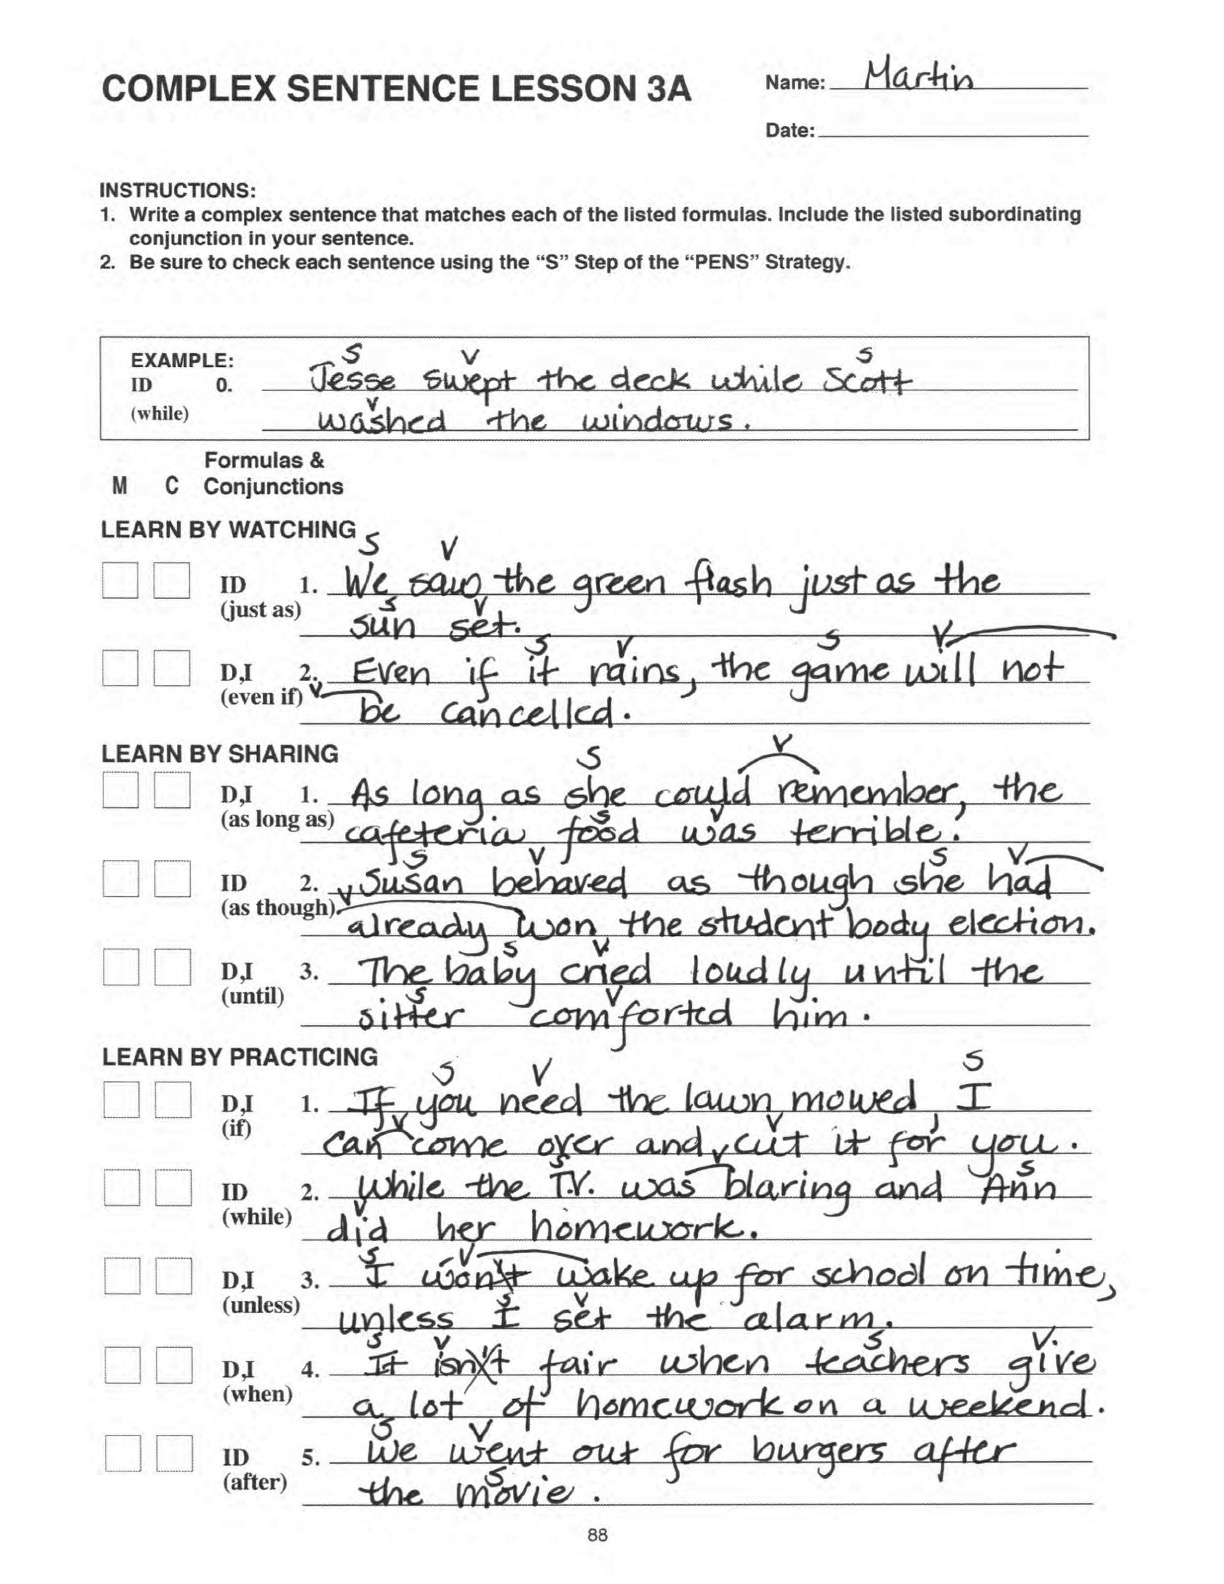 COMPLEX SENTENCE LESSON 3A
Name: Martin
Date:
INSTRUCTIONS:
1. Write a complex sentence that matches each of the listed formulas. Include the listed subordinating
conjunction in your sentence.
2. Be sure to check each sentence using the “S” Step of the “PENS” Strategy.
S V S
EXAMPLE:
ID 0. Jesse swept the deck while Scott
V
(while) washed the windows.
Formulas &
M C Conjunctions
LEARN BY WATCHING
S V
ID 1. We saw the green flash just as the
(just as) S V
sun set.
S V S V
D,I 2. Even if it rains, the game will not
(even if) V
be cancelled.
LEARN BY SHARING
S V
D,I 1. As long as she could remember, the
(as long as) S V
cafeteria food was terrible.
S V S V
ID 2. Susan behaved as though she had
(as though) V
already won the student body election.
S V
D,I 3. The baby cried loudly until the
(until) S V
sitter comforted him.
LEARN BY PRACTICING
S V S
D,I 1. If you need the lawn mowed, I
(if) V V
can come over and cut it for you.
S V S
ID 2. While the T.V. was blaring and Ann
(while) V
did her homework.
S V
D,I 3. I won't wake up for school on time,
(unless) S V
unless I set the alarm.
S V S V.
D,I 4. It isn't fair when teachers give
(when)
a lot of homework on a weekend.
S V
ID 5. We went out for burgers after
(after) S
the movie.
88